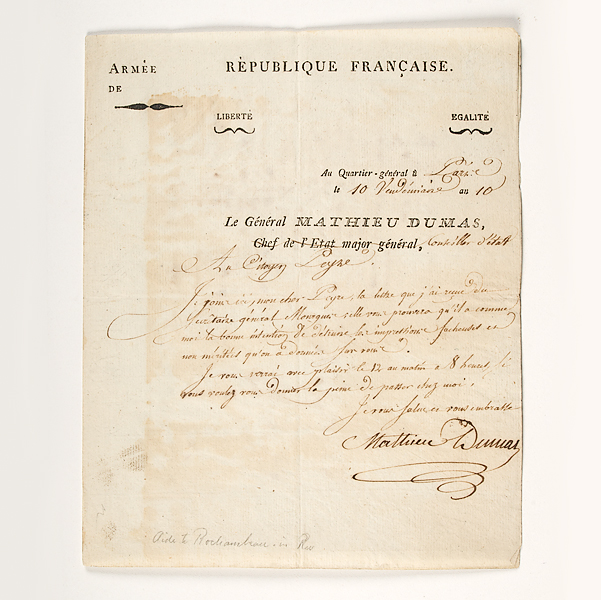 ARMÉE
DE
RÉPUBLIQUE FRANÇAISE.
LIBERTÉ
EGALITÉ
Au Quartier-général à Paris
le 10 Vendémiaire an 10
Le Général MATHIEU DUMAS,
Chef de l'Etat major général, Conseiller d'Etat
Au Citoyen Peyre.
Je joins ici, mon cher Peyre, la lettre que j'ai reçue du
Secrétaire général elle vous prouvera qu'il a comme
moi la bonne intention de détruire les impressions facheuses et
non méritées qu'on a données sur vous.
Je vous verrai avec plaisir le 12 au matin à 8 heures, si
vous voulez vous donner la peine de passer chez moi.
Je vous salue et vous embrasse
Mathieu Dumas
Aide to Rochambeau in Rev